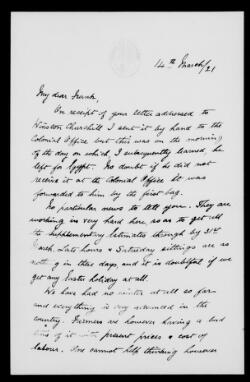 14th March/21
My dear Frank,
On receipt of your letter addressed to
Winston Churchill I sent it by hand to the
Colonial Office but this was on the morning
of the day on which, I subsequently learned, he
left for Egypt. No doubt if he did not
receive it at the Colonial Office it was
forwarded to him by the first bag.
No particular news to tell you. They are
working us very hard here, so as to get all
the Supplementary Estimates through by 31st
March. Late hours & Saturday sittings are as
nothing in these days and it is doubtful if we
get any Easter holiday at all.
We have had no winter at all so far
and everything is very advanced in the
country. Farmers are however having a bad
time of it with present prices & cost of
labour. One cannot help thinking however